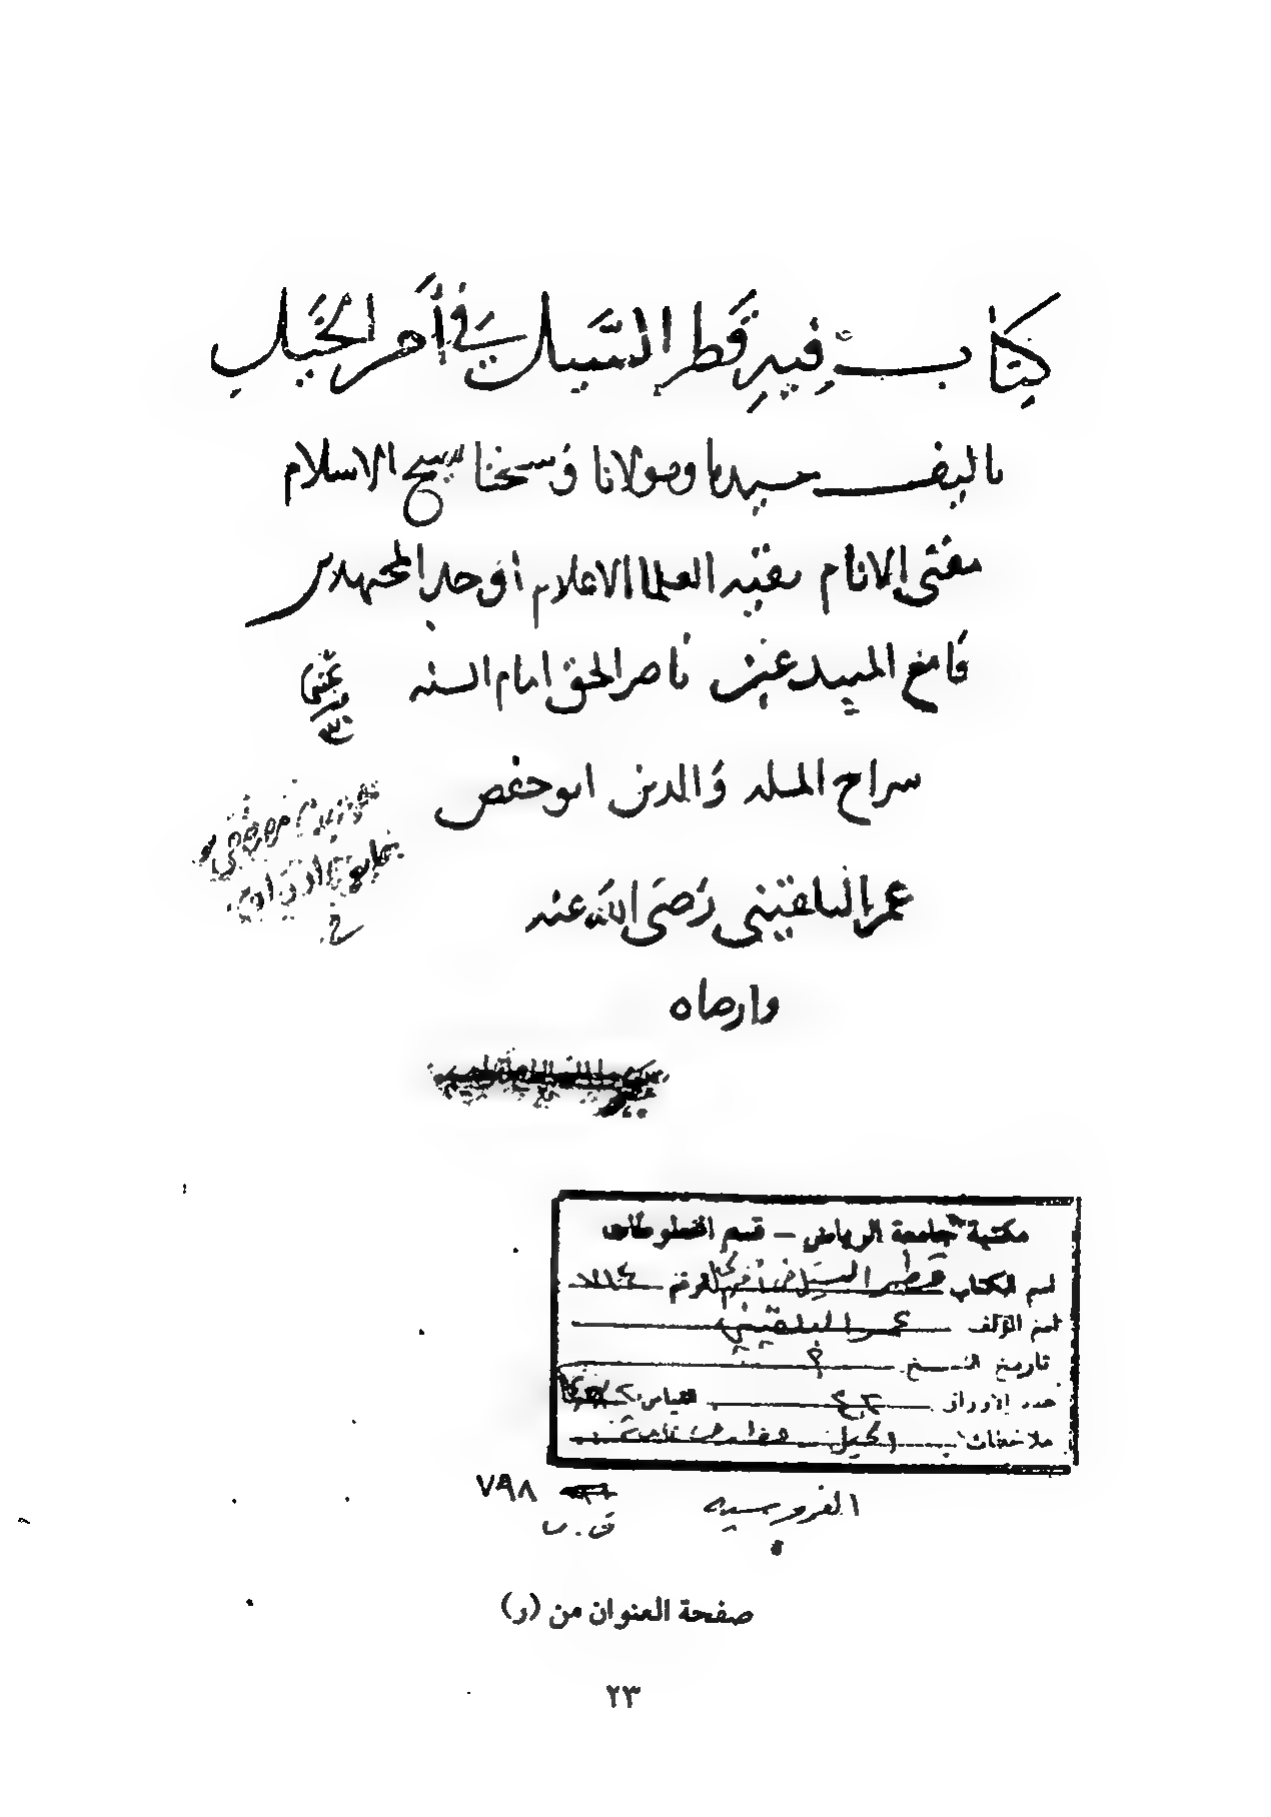 كتاب فيه قطر السيل في أمر الخيل
تاليف سيدنا ومولانا وشيخنا شيخ الاسلام
مفتى الانام بقيه العلما الاعلام أوحد المجتهدين
قامع المبتدعين ناصر الحق امام السنه
سراج المله والدين ابو حفص
عمر البلقينى رَضى الله عنه
وارضاه
مكتبة جامعة الرياض – قسم المخطوطات
اسم الكتاب قطر السيل في أمر الخيل الرقم
اسم المؤلف عمر البلقيني
تاريخ النسخ
عدد الأوراق القياس
ملاحظات
الفروسيه
٧٩٨
ق . ب
صفحة العنوان من (ر)
٢٣